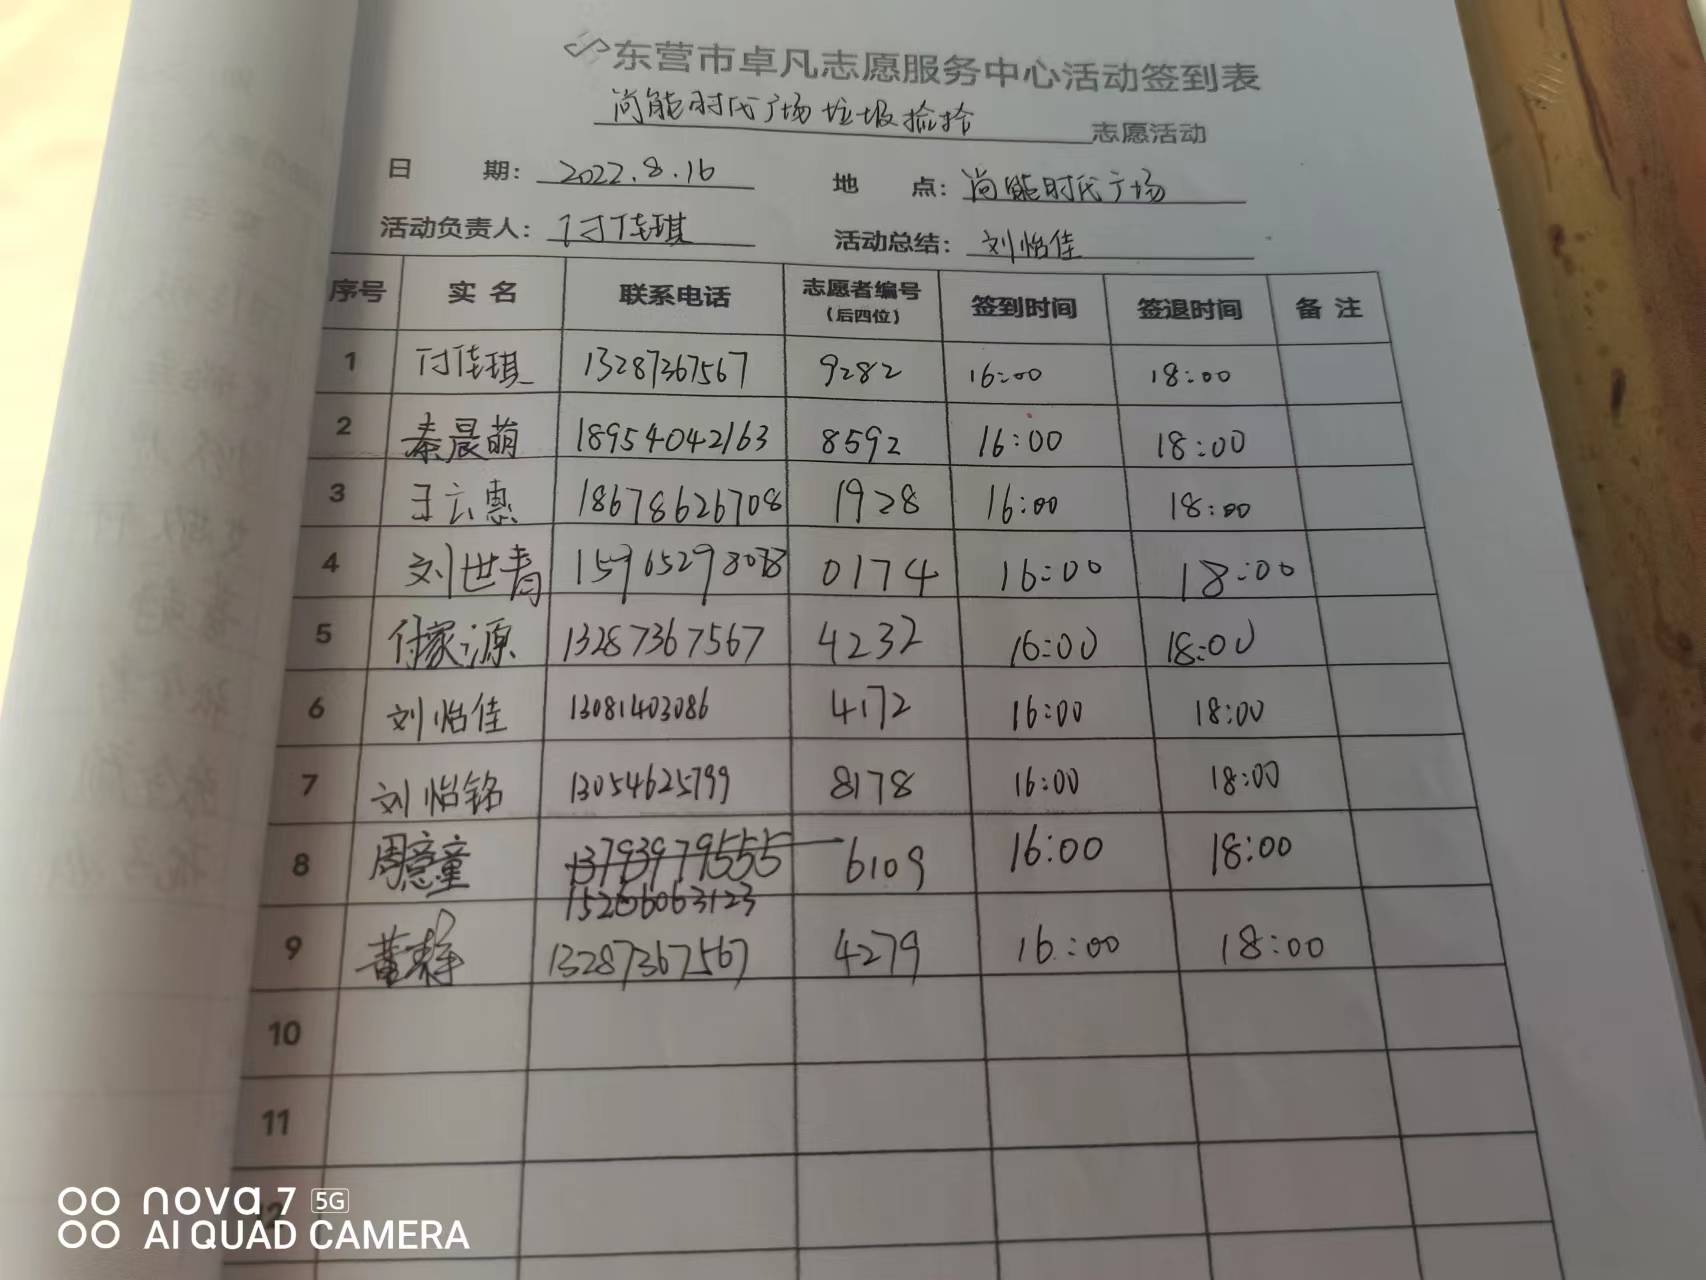 东营市卓凡志愿服务中心活动签到表
尚能时代广场垃圾捡拾 志愿活动
日 期： 2022.8.16 地 点： 尚能时代广场
活动负责人： 付佳琪 活动总结： 刘怡佳
序号 实名 联系电话 志愿者编号（后四位） 签到时间 签退时间 备注
1 付佳琪 13287367567 9282 16:00 18:00
2 秦晨萌 18954042163 8592 16:00 18:00
3 王云惠 18678626708 1928 16:00 18:00
4 刘世青 0174 16:00 18:00
5 付家源 13287367567 4232 16:00 18:00
6 刘怡佳 13081403086 4172 16:00 18:00
7 刘怡铭 13054625799 8178 16:00 18:00
8 周意童 13793979555 6109 16:00 18:00
15266063123
9 黄静 13287367567 4279 16:00 18:00
10
11
12
nova 7 5G
AI QUAD CAMERA